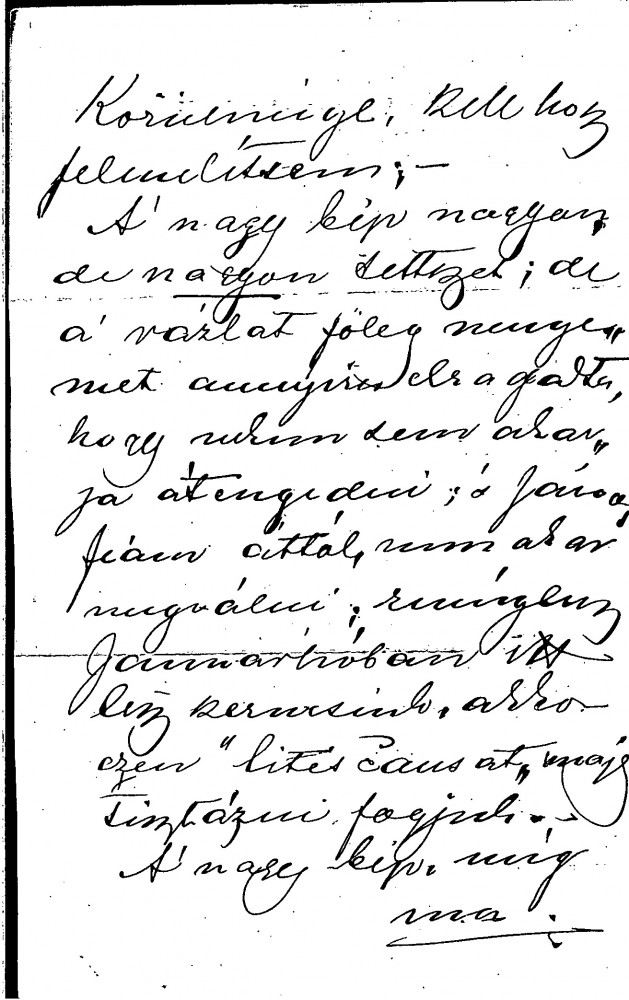 Körülmélyel, kell hogy
felemlítsem; —
A' nagy kép nagyon,
de nagyon tettszet; de
a' vázlat főleg menye„
met annyira elragadta,
hogy nekem sem akar„
ja átengedni; 's János
fiam áttól, nem akar
megválni; reménylem
Januarhóban itt
lesz keresünk, akko
ezen "lites causat„ majd
tisztázni fogjuk. —
A' nagy kép, még
ma .